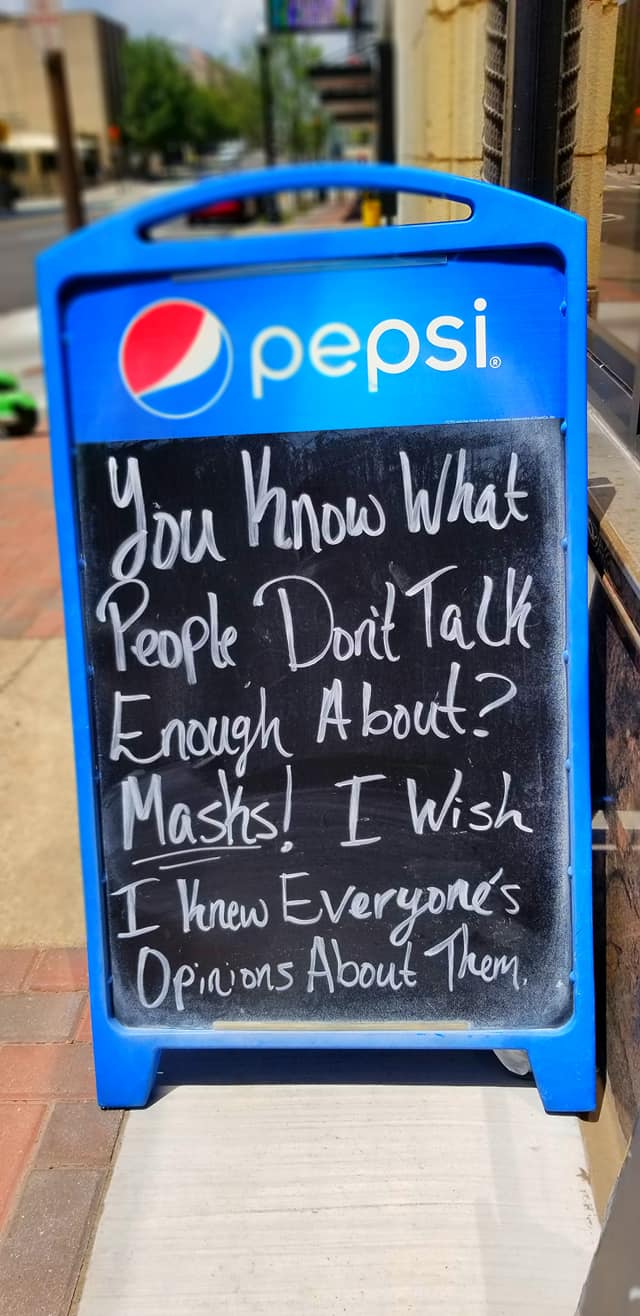 pepsi®
You Know What
People Don't Talk
Enough About?
Masks! I Wish
I Knew Everyone's
Opinions About Them.